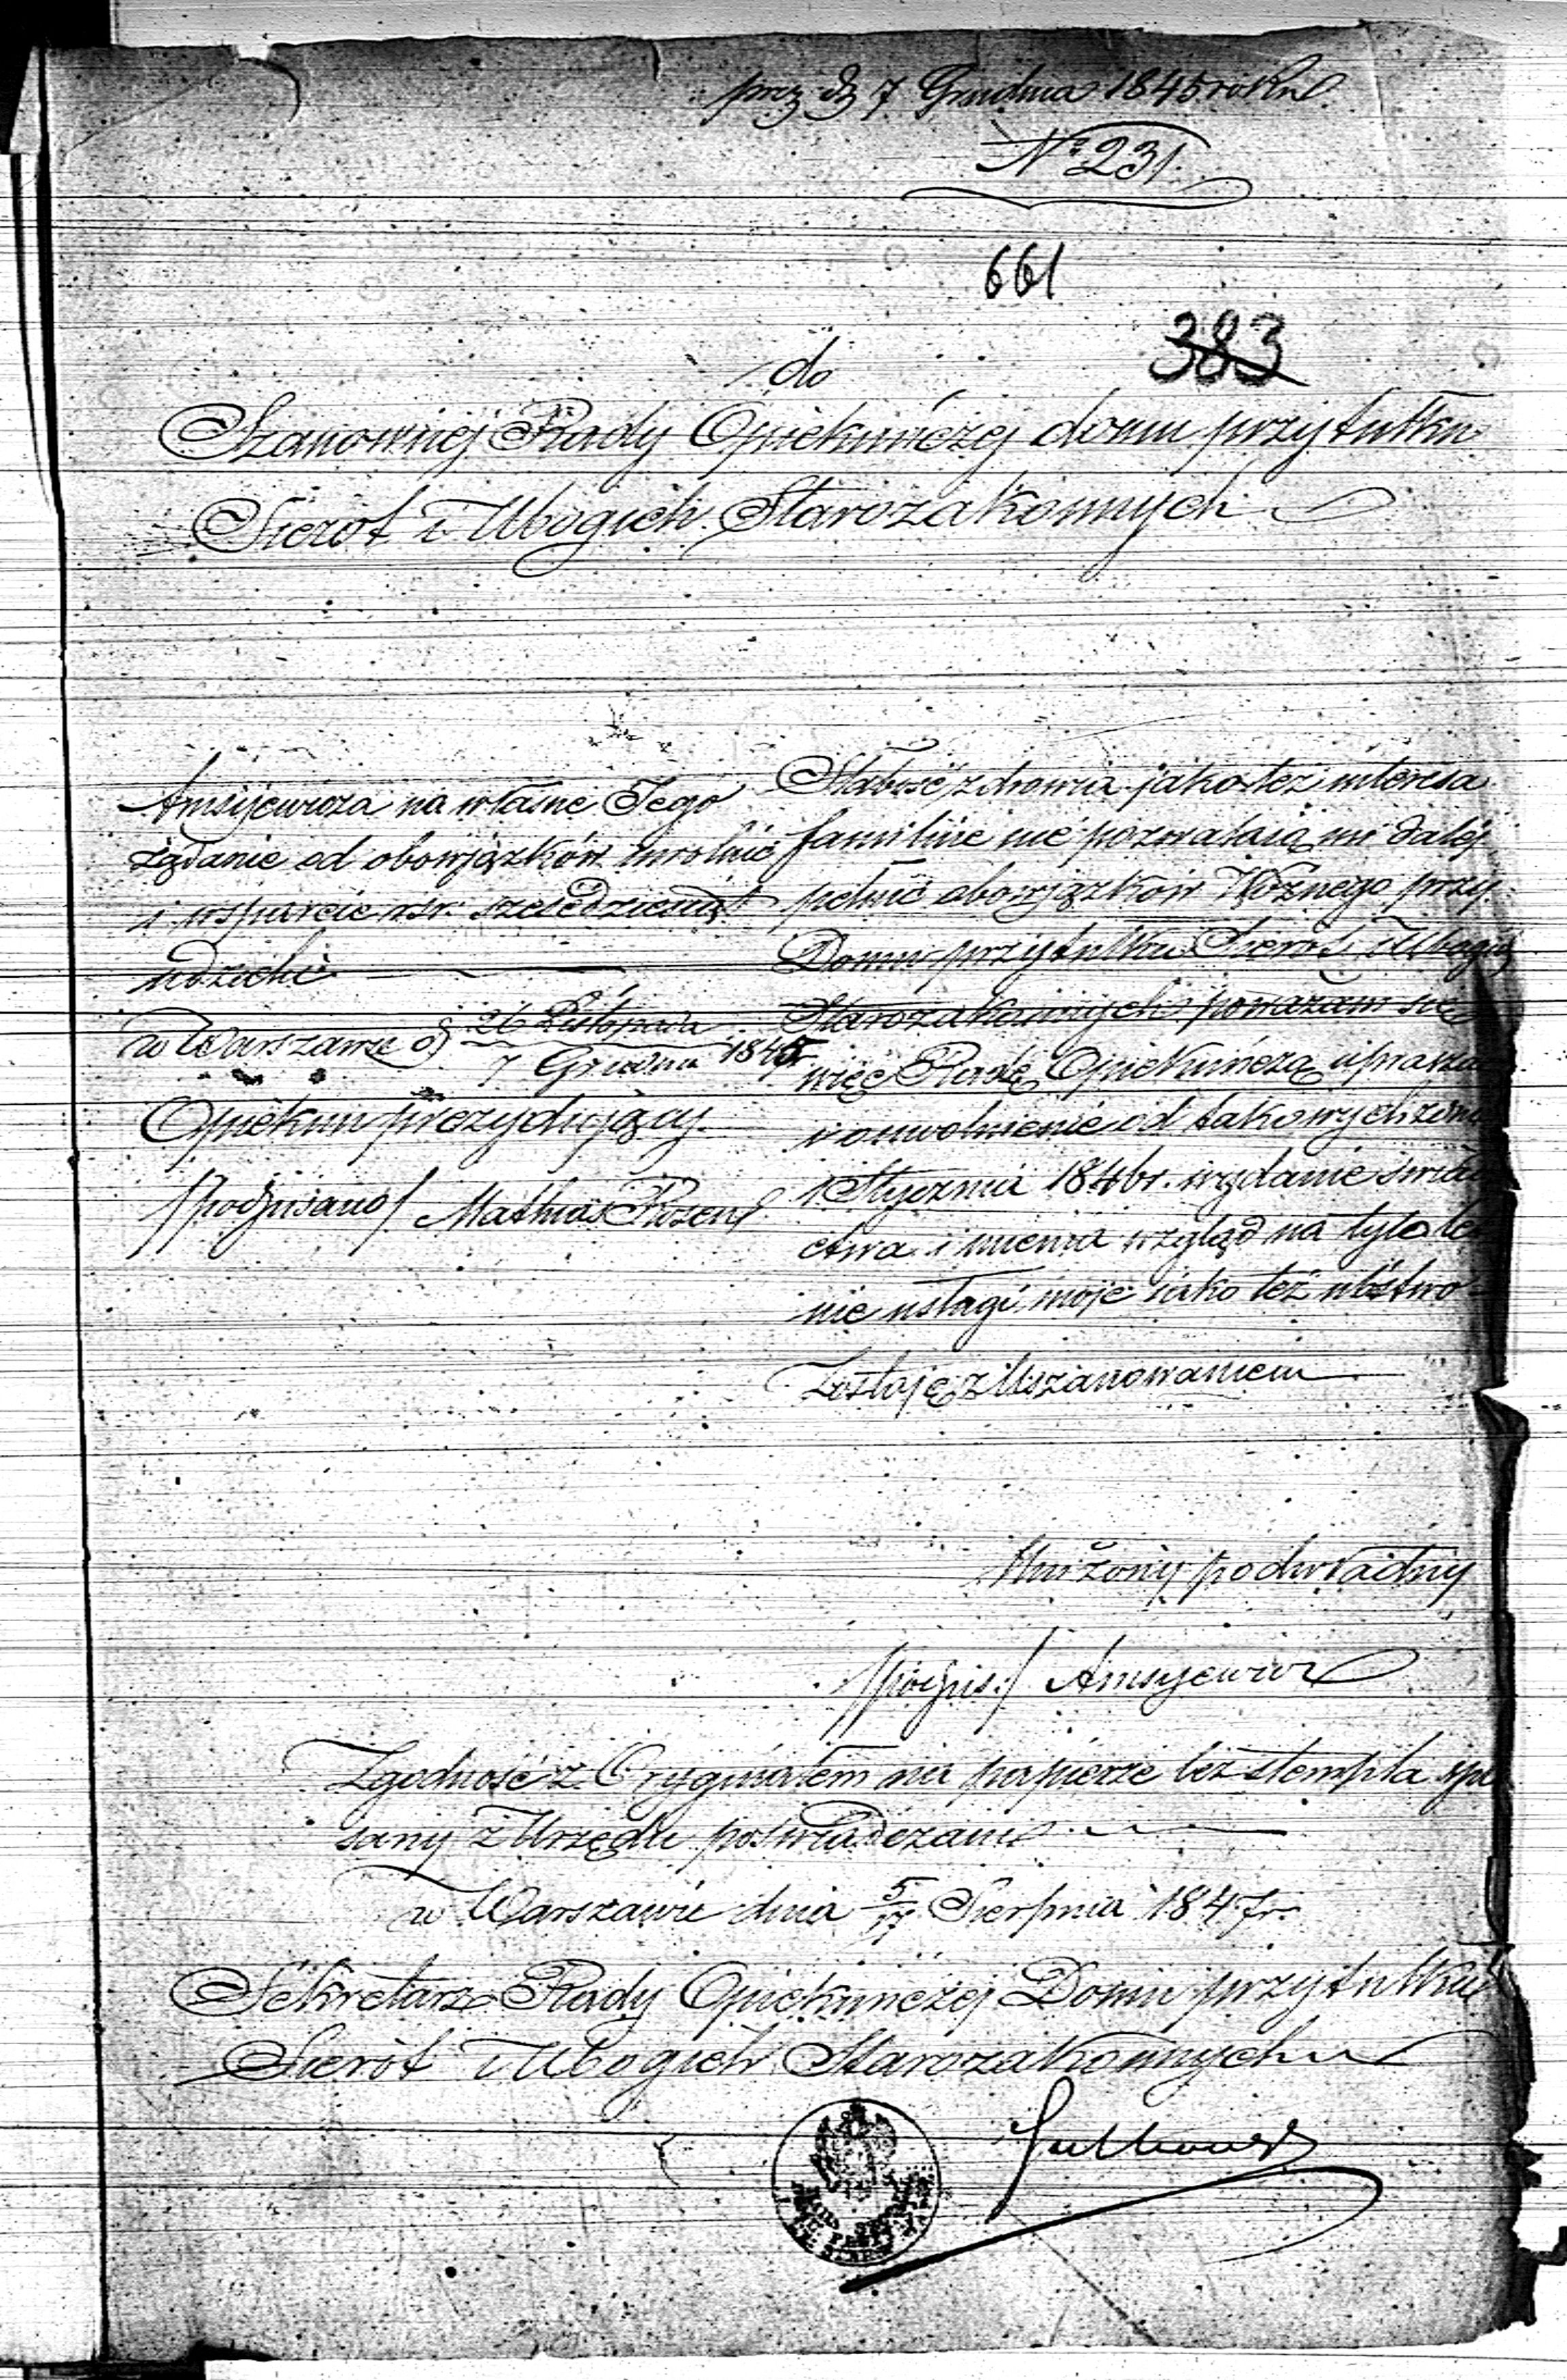 prez d 7 Grudnia 1845 roku
Nr 231.
661
383
do
Szanownej Rady Opiekuńczej domu przytułku
Sierot i Ubogich Starozakonnych
Amsijewicza na własne Jego
żądanie od obowiązków uwolnić
i wsparcie rsr. sześćdziesiąt
udzielić
w Warszawie d 26 Listopada
7 Grudnia 1845
Opiekun prezydujący
/podpisano/ Mathias Rosen
Słabość zdrowia jakoteż interesa
familijne nie pozwalają mi dalej
pełnić obowiązków Woźnego przy
Domu przytułku Sierot i Ubogich
Starozakonnych poważam się
więc Radę Opiekuńczą upraszać
o uwolnienie od takowych z dniem
1 Stycznia 1846 r. wydanie świa
ctwa i miema wzgląd na tylo le
nie usługi moje jako też ubóstwo
Zostaję z Uszanowaniem
Uniżony podwładny
/podpis:/ Amsyewicz
Zgodność z Oryginałem na papierze bez stempla spi
sany z Urzędu poświadczam
w Warszawie dnia 5/17 Sierpnia 1847 r.
Sekretarz Rady Opiekuńczej Domu przytułku
Sierot i Ubogich Starozakonnych